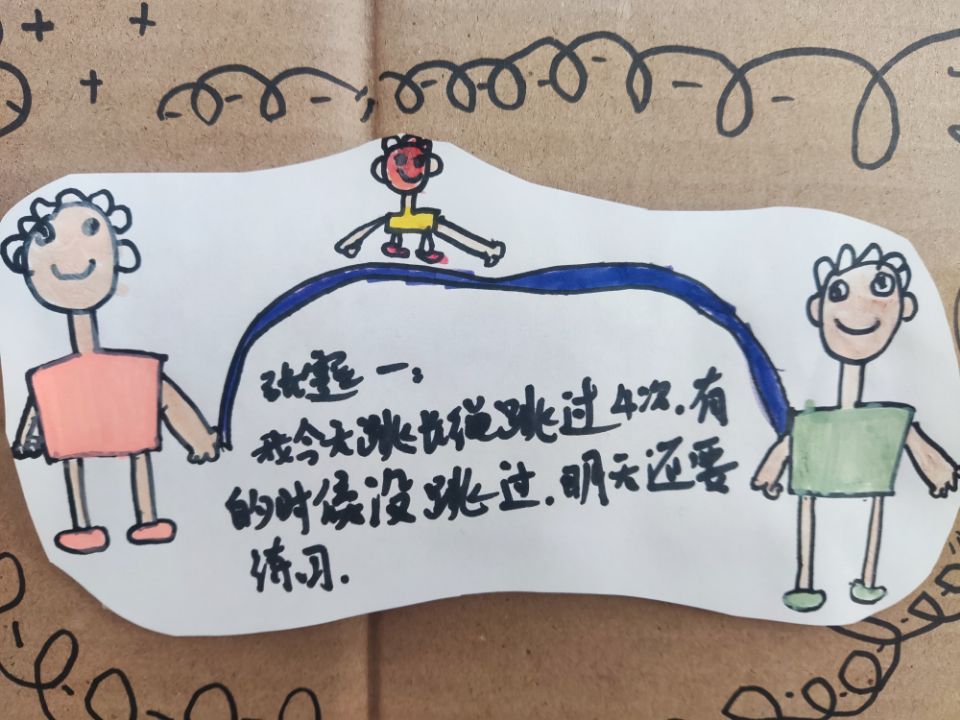 张雯一:
我今天跳长绳跳过4次.有
的时候没跳过.明天还要
练习.